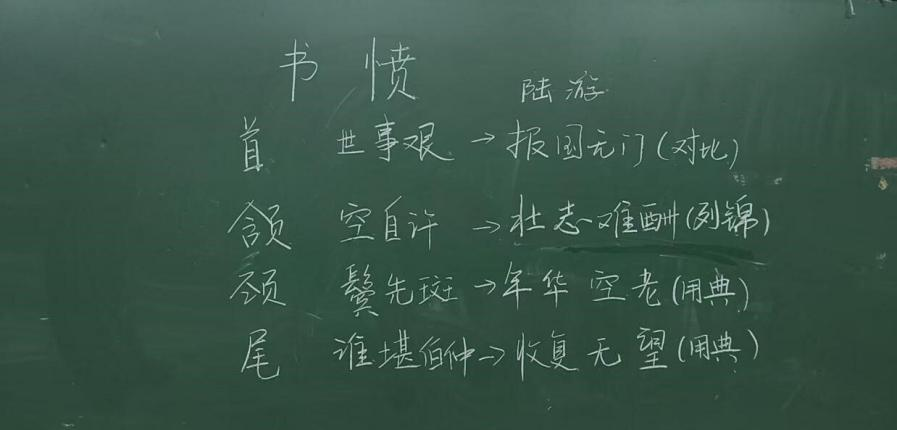 书愤
陆游
首 世事艰→报国无门(对比)
颔 空自许→壮志难酬(列锦)
颈 鬓先斑→年华空老(用典)
尾 谁堪伯仲→收复无望(用典)